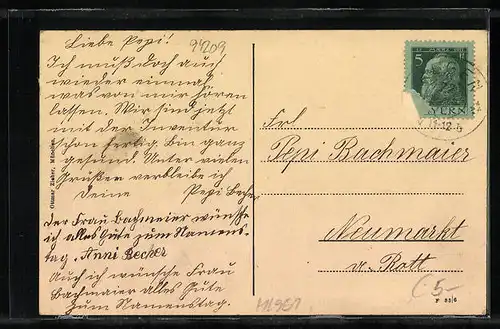 Liebe Pepi!
94209
Ich muß doch auch
wieder einmal
was von mir hören
lassen. Wir sind jetzt
mit der Inventur
schon fertig. Bin ganz
gesund. Unter vielen
Grüßen verbleibe ich
Deine Pepi
der Frau Bachmeier wünsche
ich alles Gute zum Namens-
tag. Anni Becher
Auch ich wünsche Frau
Bachmaier alles Gute
zum Namenstag.
München
5
YERN
12.
Frl
Pepi Bachmaier
Neumarkt
a. Rott
5-